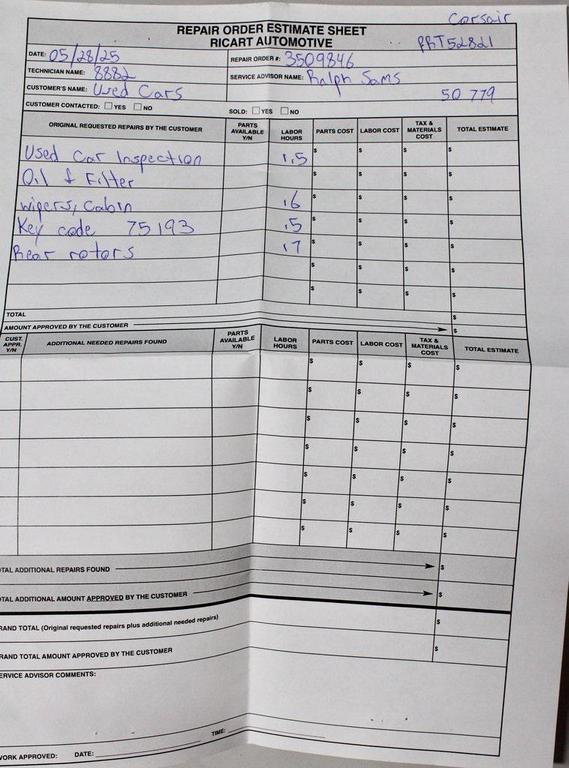 Corsair
REPAIR ORDER ESTIMATE SHEET
RICART AUTOMOTIVE
PRT52821
DATE: 05/28/25
REPAIR ORDER #: 3509846
TECHNICIAN NAME: 8882
SERVICE ADVISOR NAME: Ralph Sams
CUSTOMER'S NAME: Used Cars
50 779
CUSTOMER CONTACTED: YES NO
SOLD: YES NO
ORIGINAL REQUESTED REPAIRS BY THE CUSTOMER PARTS AVAILABLE Y/N LABOR HOURS PARTS COST LABOR COST TAX & MATERIALS COST TOTAL ESTIMATE
Used Car Inspection 1.5 $ $ $ $
Oil & Filter $ $ $ $
Wipers, Cabin .6 $ $ $ $
Key code 75193 .5 $ $ $ $
Rear rotors 1.7 $ $ $ $
$ $ $ $
$ $ $ $
TOTAL $
AMOUNT APPROVED BY THE CUSTOMER $
CUST. APPR. Y/N ADDITIONAL NEEDED REPAIRS FOUND PARTS AVAILABLE Y/N LABOR HOURS PARTS COST LABOR COST TAX & MATERIALS COST TOTAL ESTIMATE
$ $ $ $
$ $ $ $
$ $ $ $
$ $ $ $
$ $ $ $
$ $ $ $
$ $ $ $
TAL ADDITIONAL REPAIRS FOUND $
TAL ADDITIONAL AMOUNT APPROVED BY THE CUSTOMER $
RAND TOTAL (Original requested repairs plus additional needed repairs) $
RAND TOTAL AMOUNT APPROVED BY THE CUSTOMER $
ERVICE ADVISOR COMMENTS:
ORK APPROVED: DATE: TIME: